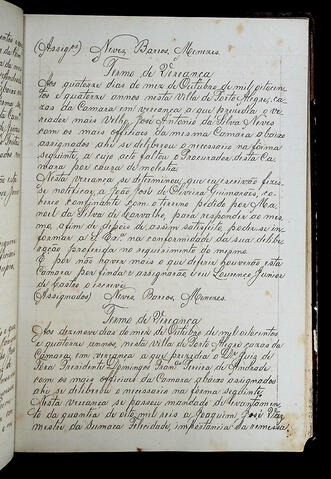 (Assigos) Neves, Barros, Menezes.
Termo de Vereança
Aos quatorze dias do mez de Outubro de mil oitocen
tos e quatorze annos nesta Villa de Porto Alegre, ca
zas da Camara em vereança a que prezedio o ve
riador mais Velho José Antonio da Silva Neves
com os mais officiaes da mesma Camara abaixo
assignados ahi se deliberou o necessario na forma
seguinte, a cujo acto faltou o Procurador desta Ca
mara por cauza de molestia.
Nesta vereança se determinou, que o escrivão fizes
se notificar, a João José de Oliveira Guimarães, co
mo confinante com o terreno pedido por Ma
noel da Silva de Carvalho, para responder ao mes
mo, afim de depois de assim satisfeito, poder-se in
formar a S. Exa. na conformidade da sua delibe
ração proferida no requerimento do mesmo.
E por não haver mais o que diferir houverão esta
Camara por finda e assignarão, eu Lourenço Junior
de Castro o escrevi.
(Assignados) Neves, Barros, Menezes.
Termo de Vereança
Aos dezenove dias do mez de Outubro de mil oitocentos
e quatorze annos, nesta Villa de Porto Alegre cazas da
Camara, em vereança a que prezedio o Dr. Juiz de
Fora Prezidente Domingos Fran. Pereira de Andrade
com os mais officiaes da Camara abaixo assignados
ahi se deliberou o necessario na forma seguinte.
Nesta vereança se passou mandado de levantamen
to da quantia de oito mil reis a Joaquim José Vaz
mestre da Sumaca Felicidade, importancia da remessa